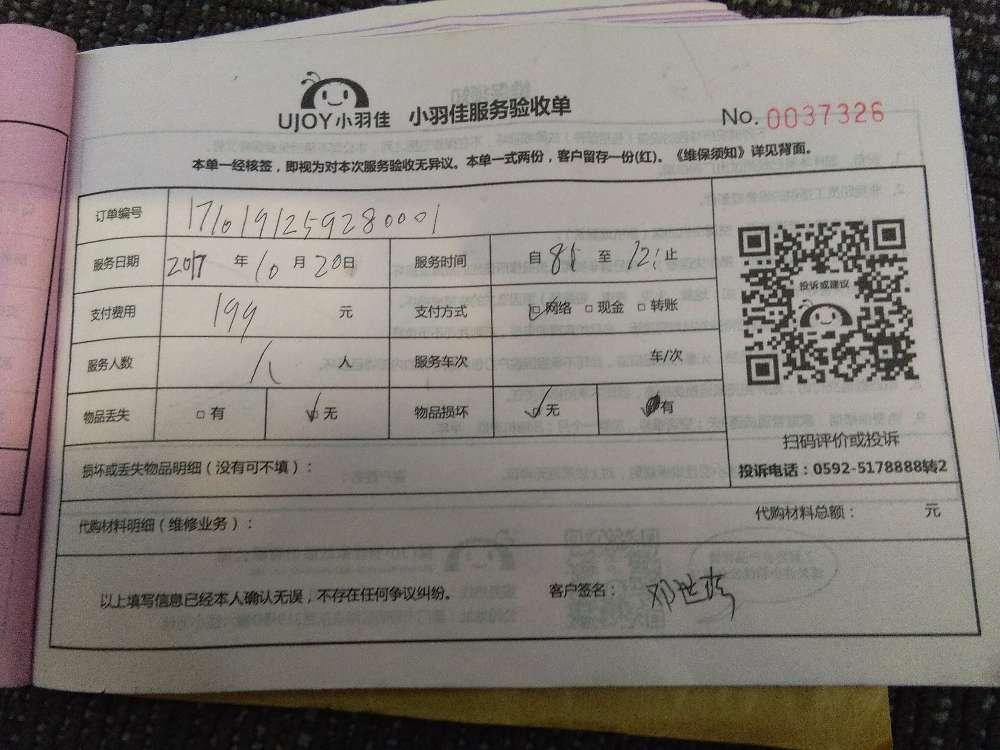 UJOY小羽佳 小羽佳服务验收单 No. 0037326
本单一经核签，即视为对本次服务验收无异议。本单一式两份，客户留存一份(红)。《维保须知》详见背面。
订单编号 1710191259280001
服务日期 2017 年 10 月 20 日 服务时间 自 8: 至 12: 止
支付费用 199 元 支付方式 □网络 □现金 □转账
服务人数 人 服务车次 车/次
物品丢失 □有 □无 物品损坏 □无 □有
投诉或建议
扫码评价或投诉
投诉电话：0592-5178888转2
损坏或丢失物品明细（没有可不填）：
代购材料明细（维修业务）： 代购材料总额： 元
以上填写信息已经本人确认无误，不存在任何争议纠纷。 客户签名： 邓世